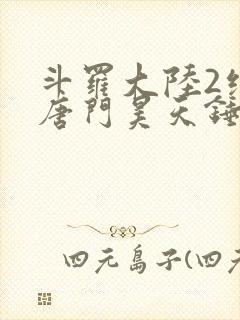 斗羅大陸2絕
唐門昊天錘
四元島子(四元